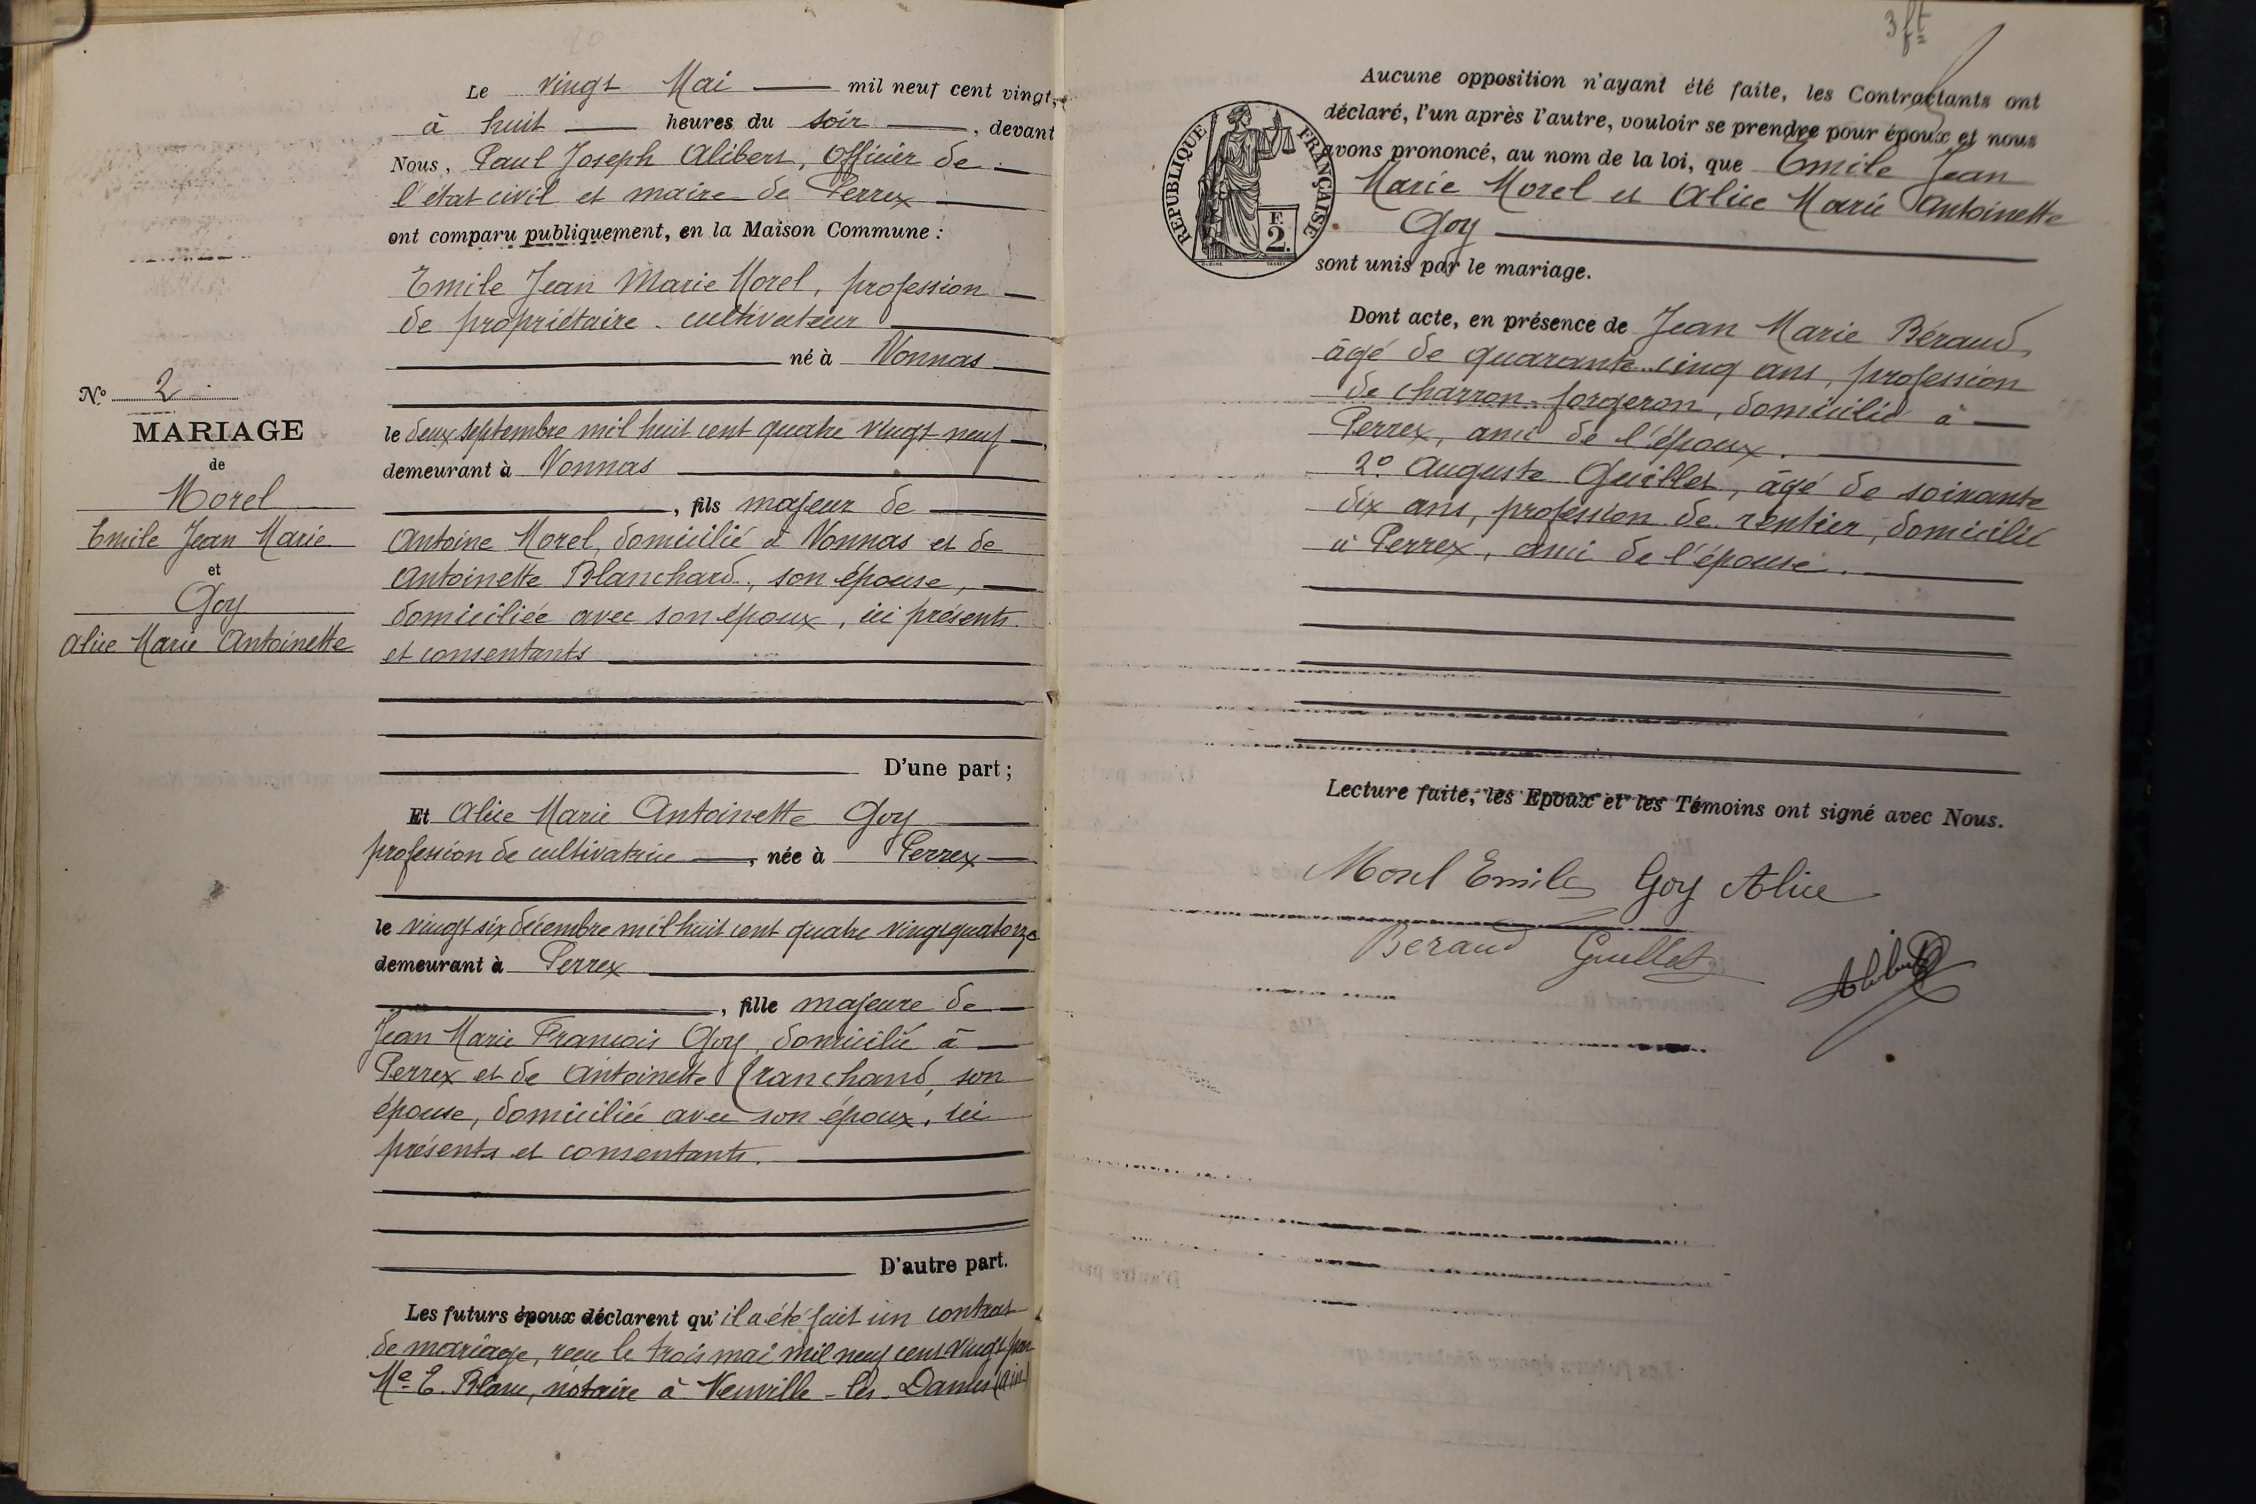 Le vingt Mai mil neuf cent vingt,
à huit heures du soir, devant
Nous, Paul Joseph Alibert, Officier de
l'état civil et maire de Perrex
ont comparu publiquement, en la Maison Commune :
Emile Jean Marie Morel, profession
de propriétaire - cultivateur
né à Vonnas
le deux septembre mil huit cent quatre vingt neuf,
demeurant à Vonnas
, fils majeur de
Antoine Morel, domicilié à Vonnas et de
Antoinette Blanchard, son épouse,
domiciliée avec son époux, ici présents
et consentants
D'une part ;
Et Alice Marie Antoinette Goy
profession de cultivatrice, née à Perrex
le vingt six décembre mil huit cent quatre vingt quatorze
demeurant à Perrex
, fille majeure de
Jean Marie François Goy, domicilié à
Perrex et de Antoinette Franchand, son
épouse, domiciliée avec son époux, ici
présents et consentants.
D'autre part.
Les futurs époux déclarent qu'il a été fait un contrat
de mariage, reçu le trois mai mil neuf cent vingt par
Me E. Blanc, notaire à Neuville-les-Dames (Ain)
No 2
MARIAGE
de
Morel
Emile Jean Marie
et
Goy
Alice Marie Antoinette
3 ft
Aucune opposition n'ayant été faite, les Contractants ont
déclaré, l'un après l'autre, vouloir se prendre pour époux et nous
avons prononcé, au nom de la loi, que Emile Jean
Marie Morel et Alice Marie Antoinette
Goy
sont unis par le mariage.
REPUBLIQUE FRANÇAISE
F.
2.
Dont acte, en présence de Jean Marie Béraud,
âgé de quarante-cinq ans, profession
de charron-forgeron, domicilié à
Perrex, ami de l'époux.
2o Auguste Guillet, âgé de soixante
dix ans, profession de rentier, domicilié
à Perrex, ami de l'épouse.
Lecture faite, les Epoux et les Témoins ont signé avec Nous.
Morel Emile Goy Alice
Beraud Guillet
Alibert